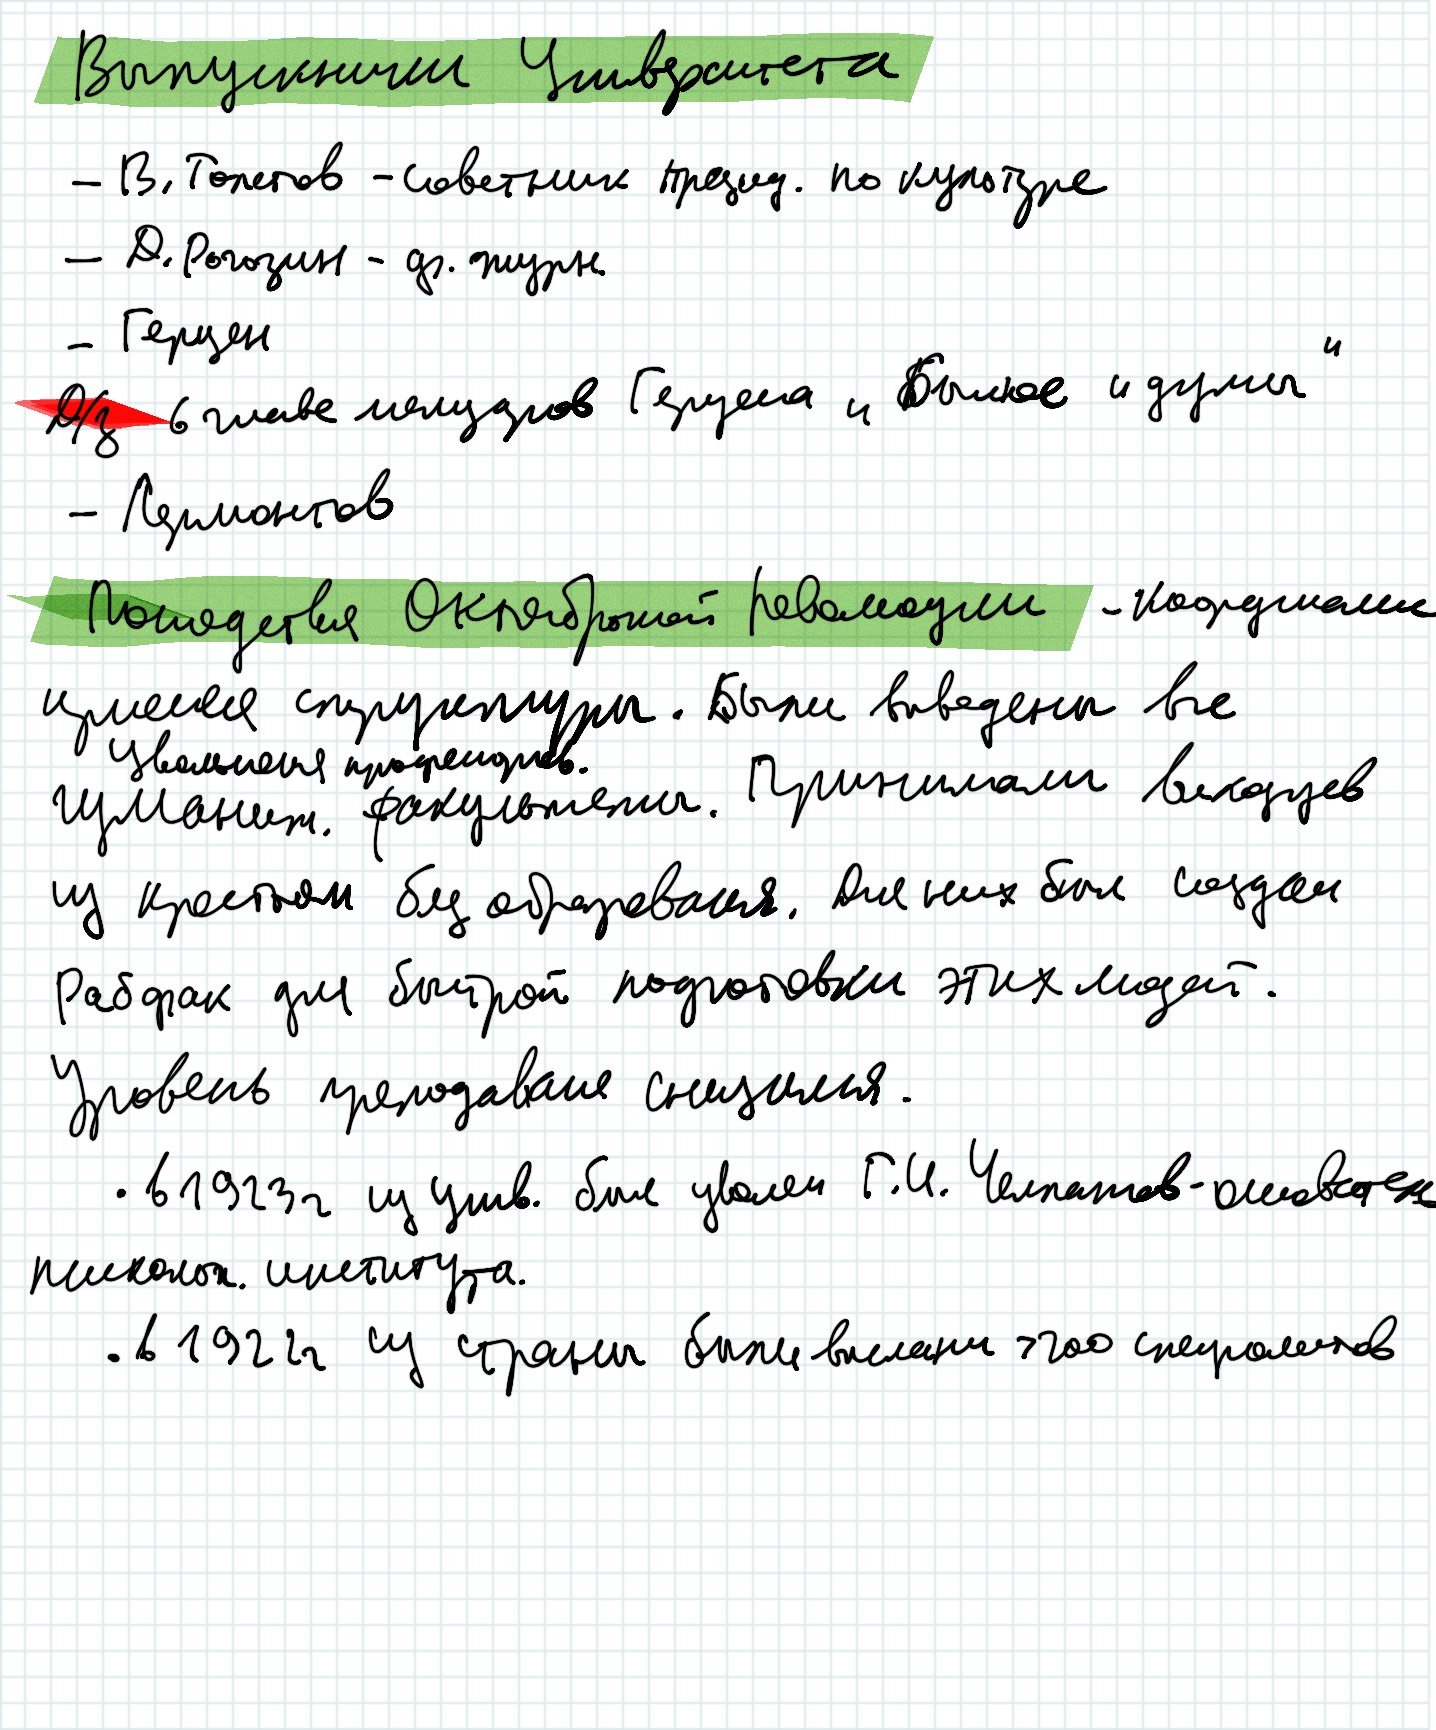 Выпускники Университета
- В. Толстов - советник презид. по культуре
- Д. Рогозин - ф. журн.
- Герцен
Д/з 6 главе мемуаров Герцена „Былое и думы"
- Лермонтов
Последствия Октябрьской революции -
структуры. Были выведены все
Увольнения профессоров.
гуманит. факультеты. Принимали выходцев
из крестьян без образования. Для них был создан
Рабфак для быстрой подготовки этих людей.
Уровень преподавания снизился.
. в 1923г из унив. был уволен Г.И. Челпанов - основатель
психолог. института.
. в 1922г из страны были высланы >200 специалистов